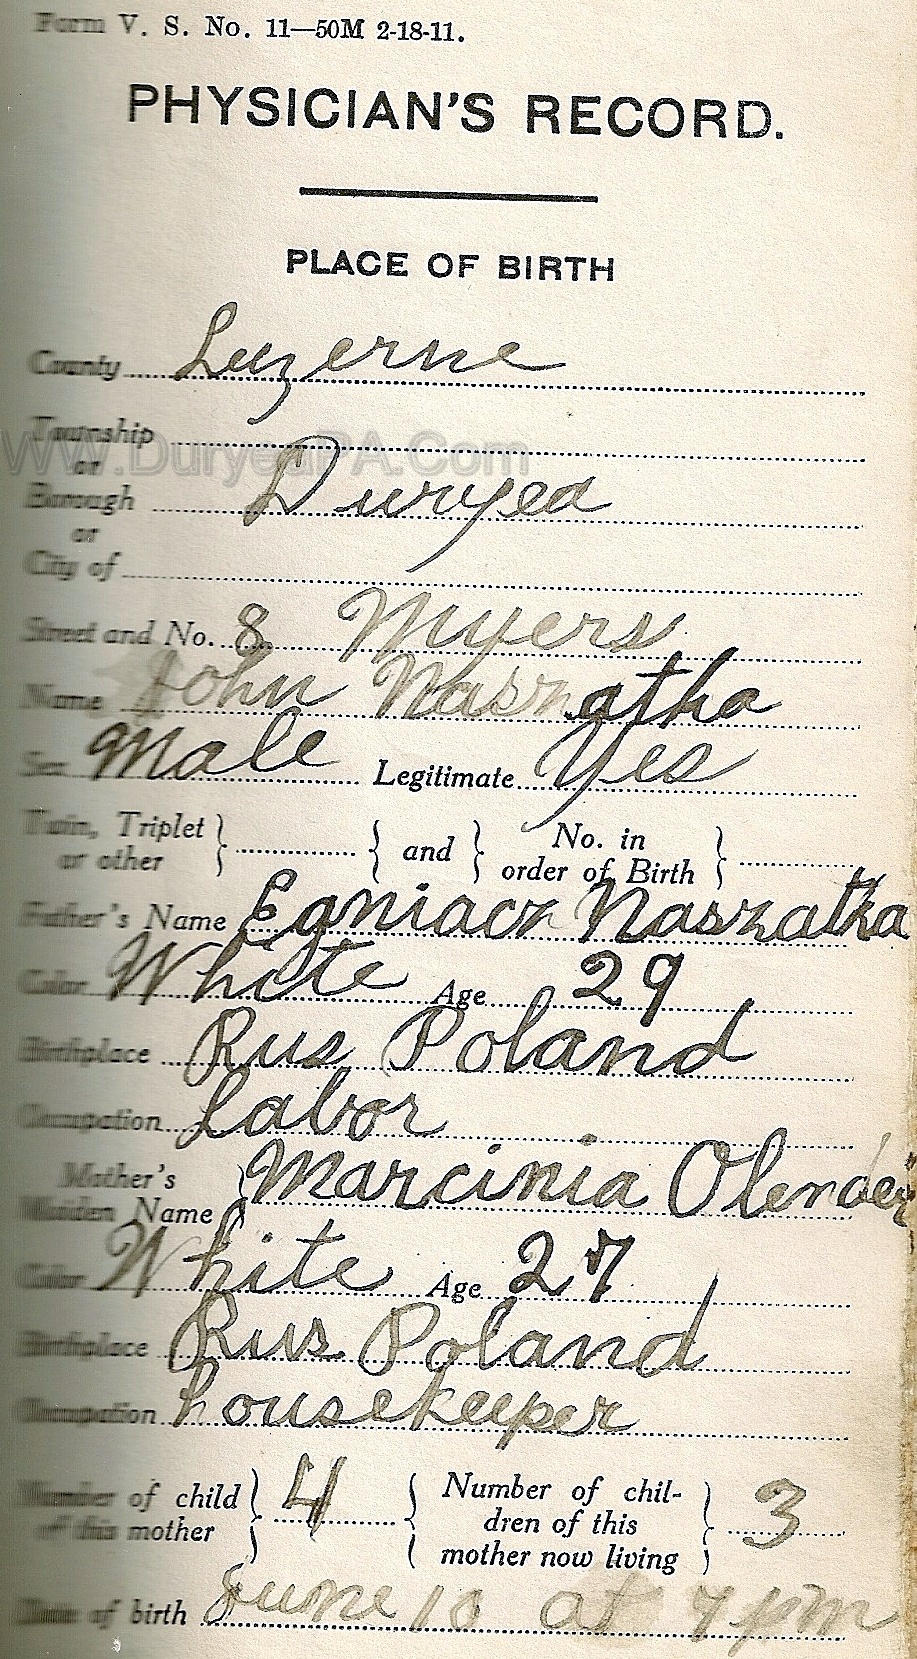 Form V. S. No. 11—50M 2-18-11.
PHYSICIAN'S RECORD.
PLACE OF BIRTH
County Luzerne
Township
www.DuryeaPA.Com
or
Borough Duryea
or
City of
Street and No. 8 Myers
Name John Naszatka
Sex Male Legitimate Yes
Twin, Triplet or other } { and } No. in order of Birth }
Father's Name Egniacz Naszatka
Color White Age 29
Birthplace Rus Poland
Occupation Labor
Mother's Maiden Name } Marcinia
Color White Age 27
Birthplace Rus Poland
Occupation housekeeper
Number of child of this mother } 4 { Number of chil-
dren of this
mother now living } 3
Date of birth June 10 at 7 pm